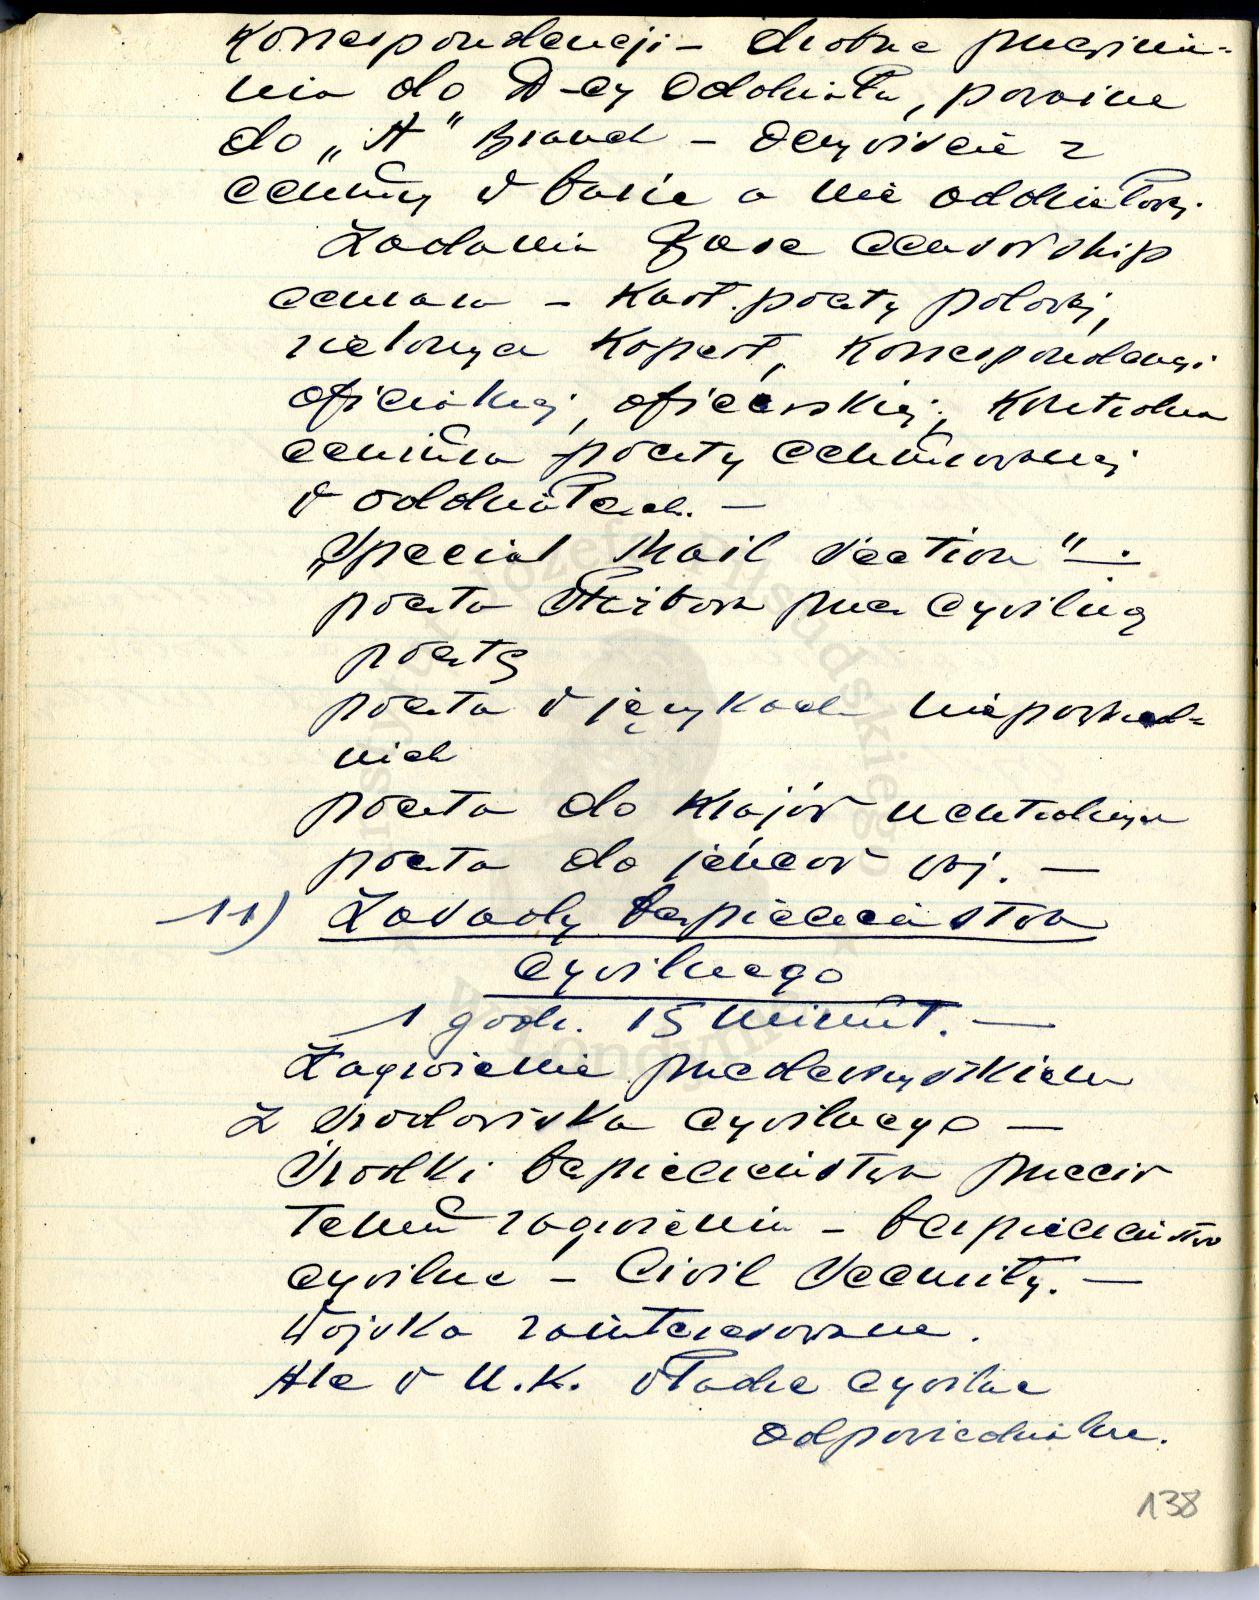 korespondencji – drobne przewinie-
nia do D-cy Oddziału, poważne
do „A" Branch – oczywiście z
cenzury w bazie a nie oddziałowej.
Zadania Base Censorship
cenzura – kart poczty polowej,
zielonych kopert, korespondencji
oficjalnej, oficerskiej; kontrolna
cenzura poczty cenzurowanej
w oddziałach. –
„Special Mail Section" – .
poczta służbowa przez cywilną
pocztę
poczta w językach niepowszed-
nich
poczta do krajów neutralnych
poczta do jeńców woj. –
11) Zasady bezpieczeństwa
cywilnego
1 godz. 15 minut. –
Zagrożenie przedewszystkiem
z środowiska cywilnego –
Środki bezpieczeństwa przeciw
temu zagrożeniu – bezpieczeństwo
cywilne – Civil Security. –
Wojska zainteresowane.
Ale w U.K. władze cywilne
odpowiedzialne.
138
Instytut Józefa Piłsudskiego
w Londynie